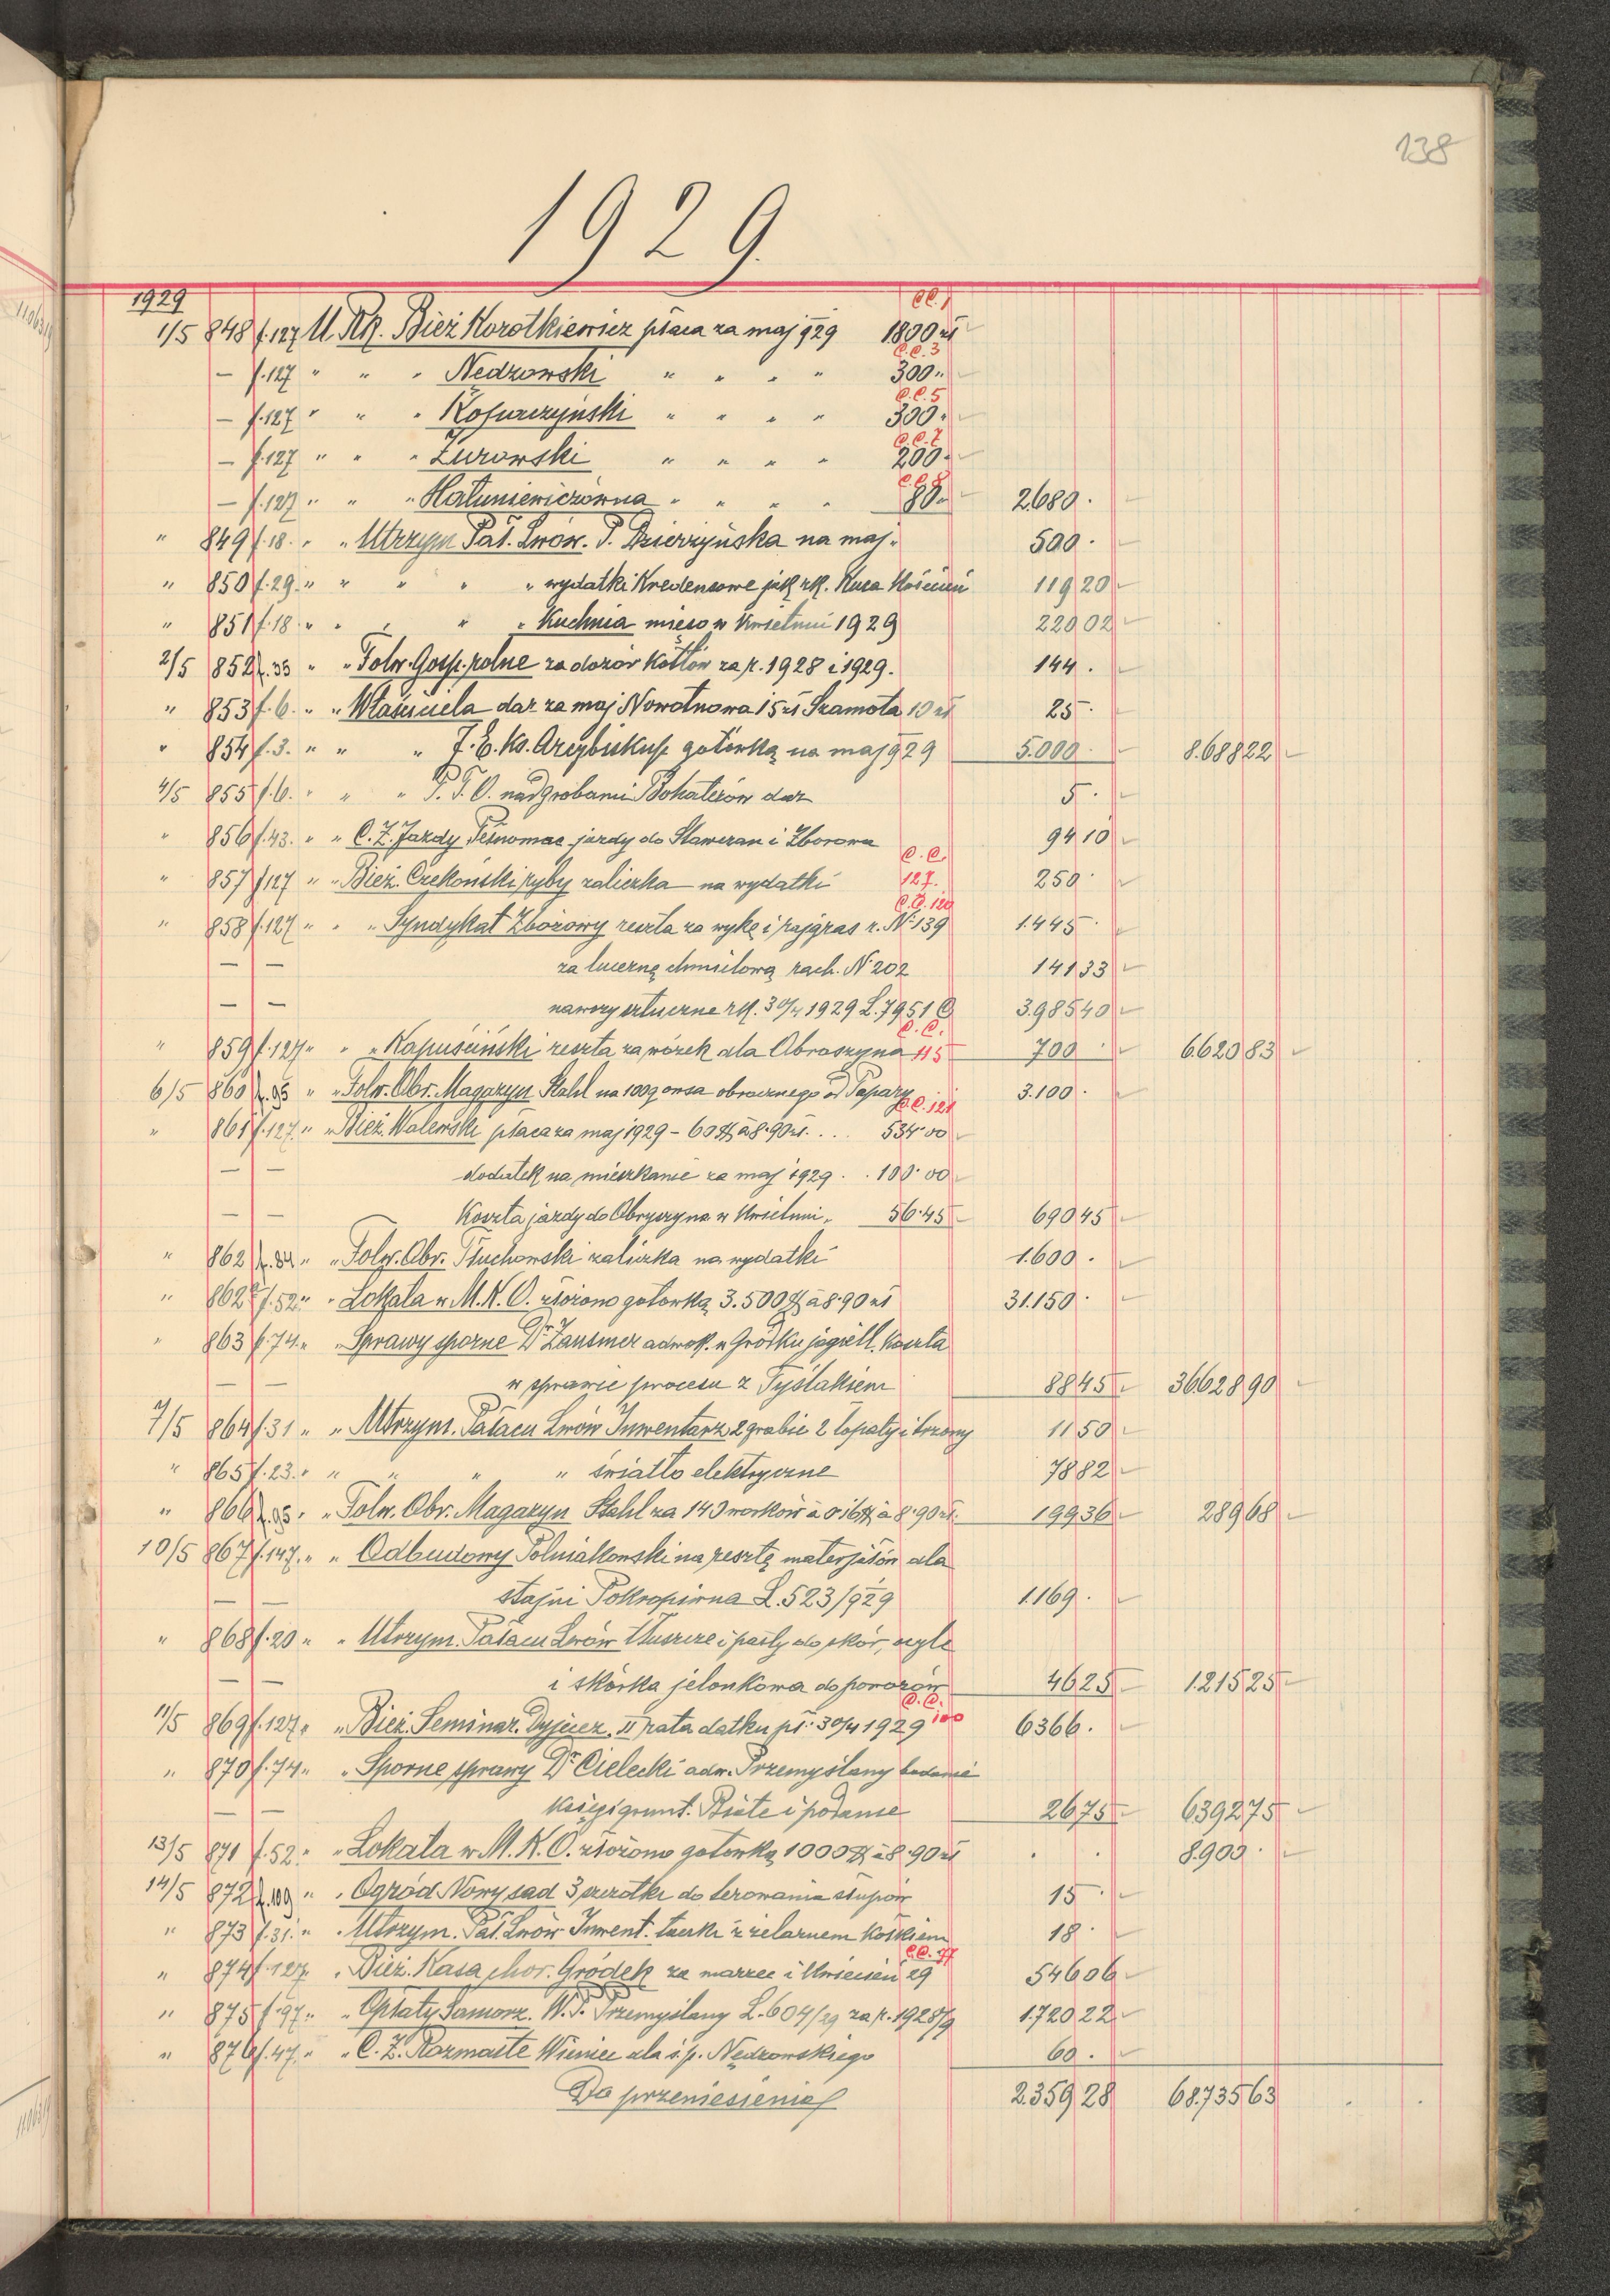 138
1929.
1929
C.C. 1
1/5 848 f.127 U. Rk. Bież Korotkiewicz płaca za maj 929 1800 zł
C.C. 3
— f.127 " " " Nedzowski " " " " 300 "
C.C. 5
— f.127 " " " " " " " 300 "
C.C. 7
— f.127 " " " Żurowski " " " " 200 "
C.C. 8
— f.127 " " " Hatuniewiczówna " " " " 80 " 2.680 .
" 849 f.18. " " Utrzym Pał. Lwów. P. Dzierżyńska na maj " 500 .
" 850 f.29. " " " " " wydatki Kredensowe jak rk. 119 20
" 851 f.18 " " " " " Kuchnia mięso w Kwietniu 1929 220 02
2/5 852 f.35 " " Folw. Gosp. polne za dozór Kotłów za r. 1928 i 1929. 144 .
" 853 f.6. " " Właściciela dar za maj Nowotnowa 15 zł Szamota 10 zł 25 .
" 854 f.3. " " " J. E. Ks. Arcybiskup gotówką na maj 929 5.000 . 8.688 22
4/5 855 f.6. " " " P. T. O. nad grobami Bohaterów dar 5 .
" 856 f.43. " " C. Z. Jazdy jazdy do Stawczan i Zborowa 94 10
C. C.
" 857 f.127 " " Bież. Czekoński ryby zaliczka na wydatki 127. 250 .
C.C. 120
" 858 f.127 " " " Syndykat Zbożowy reszta za wykę i rajgras r. No 139 1.445 .
— — za lucernę chmielową rach. No 202 141 33
— — nawozy sztuczne rk. 30/4 1929 L. 7951 3.985 40
C. C.
" 859 f.127 " " " Kapuściński reszta za wózek dla Obroszyna 115 700 . 6.620 83
6/5 860 f.95 " " Folw. Obr. Magazyn Stahl na 100 q owsa obrocznego 3.100 .
C.C. 121
" 861 f.127. " " Bież. Walewski płaca za maj 1929 – 60 $ à 8·90 zł. . . . 534·00
— — dodatek na mieszkanie za maj 1929 . . 100·00
— — Koszta jazdy do Obryszyna w Kwietniu . 56·45 690 45
" 862 f.94 " " Folw. Obr. Tłuchowski zaliczka na wydatki 1.600 .
" 862a f.52. " " Lokata w M. K. O. złożono gotówką 3.500 $ à 8·90 zł 31.150 .
" 863 f.74. " " Sprawy sporne Dr Zausmer adwok. w Gródku jagiell. koszta
— — w sprawie procesu z Tyślakiem 88 45 36.628 90
7/5 864 f.31 " " Utrzym. Pałacu Lwów Inwentarz 2 grabie 2 łopaty i trzony 11 50
" 865 f.23. " " " " " światło elektryczne 78 82
" 866 f.95. " " Folw. Obr. Magazyn Stahl za 140 worków à 0·16 $ à 8·90 zł. 199 36 289 68
10/5 867 f.147. " " Odbudowy Polniakowski na resztę materjałów dla
— — stajni Pokropiwna L. 523/929 1.169 .
" 868 f.20 " " Utrzym. Pałacu Lwów tłuszcze i pasty do skór,
— — i skórka jelonkowa do powozów 46 25 1.215 25
C. C.
11/5 869 f.127 " " Bież. Seminar. Dyjecez. II rata datku pł. 30/4 1929 100 6366 .
" 870 f.74 " " Sporne sprawy Dr Cielecki adw. Przemyślany badanie
— — księgi grunt. Białe i podanie 26 75 6392 75
13/5 871 f.52. " " Lokata w M. K. O. złożono gotówką 1000 $ à 8·90 zł . . 8.900 .
14/5 872 f.109 " " Ogród Nowy sad 3 szczotki do terowania słupów 15 .
" 873 f.31. " " Utrzym. Pał. Lwów Inwent. taczki z żelaznem kółkiem 18 .
C.C. 77
" 874 f.127. " Bież. Kasa chor. Gródek za marzec i Kwiecień 29 546 06
" 875 f.97. " " Opłaty Samorz. W. P. Przemyślany L. 604/29 za r. 1928/9 1.720 22
" 876 f.47. " " C. Z. Rozmaite Wieniec dla ś. p. Nędzowskiego 60 .
Do przeniesienia 2.359 28 68.735 63 . .